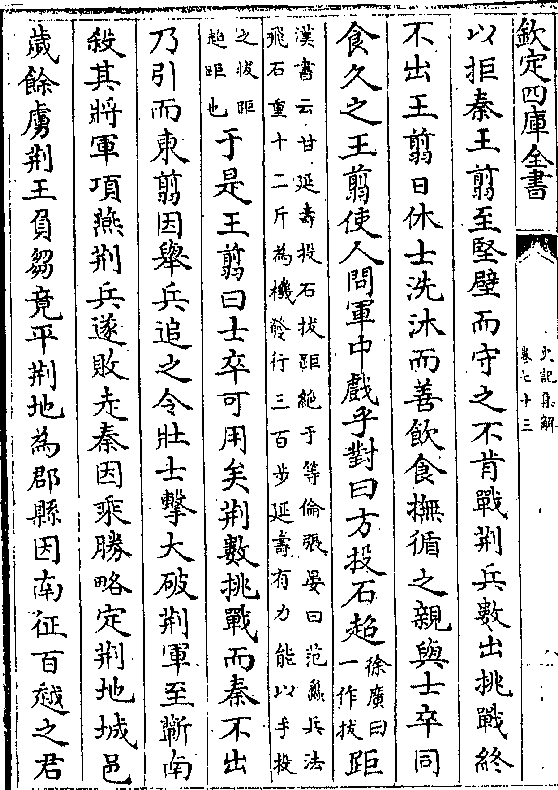 欽定四庫全書
史記集解
卷七十三
以拒秦王翦至堅壁而守之不肯戰荆兵數出挑戰終
不出王翦日休士洗沐而善飲食撫循之親與士卒同
食久之王翦使人問軍中戲乎對曰方投石超徐廣曰一作拔距
漢書云甘延壽投石拔距絶于等倫張晏曰范蠡兵法
飛石重十二斤為機發行三百步延壽有力能以手投
之拔距超距也于是王翦曰士卒可用矣荆數挑戰而秦不出
乃引而東翦因舉兵追之令壯士擊大破荆軍至蘄南
殺其將軍項燕荆兵遂敗走秦因乘勝略定荆地城邑
歲餘虜荆王負芻竟平荆地為郡縣因南征百越之君